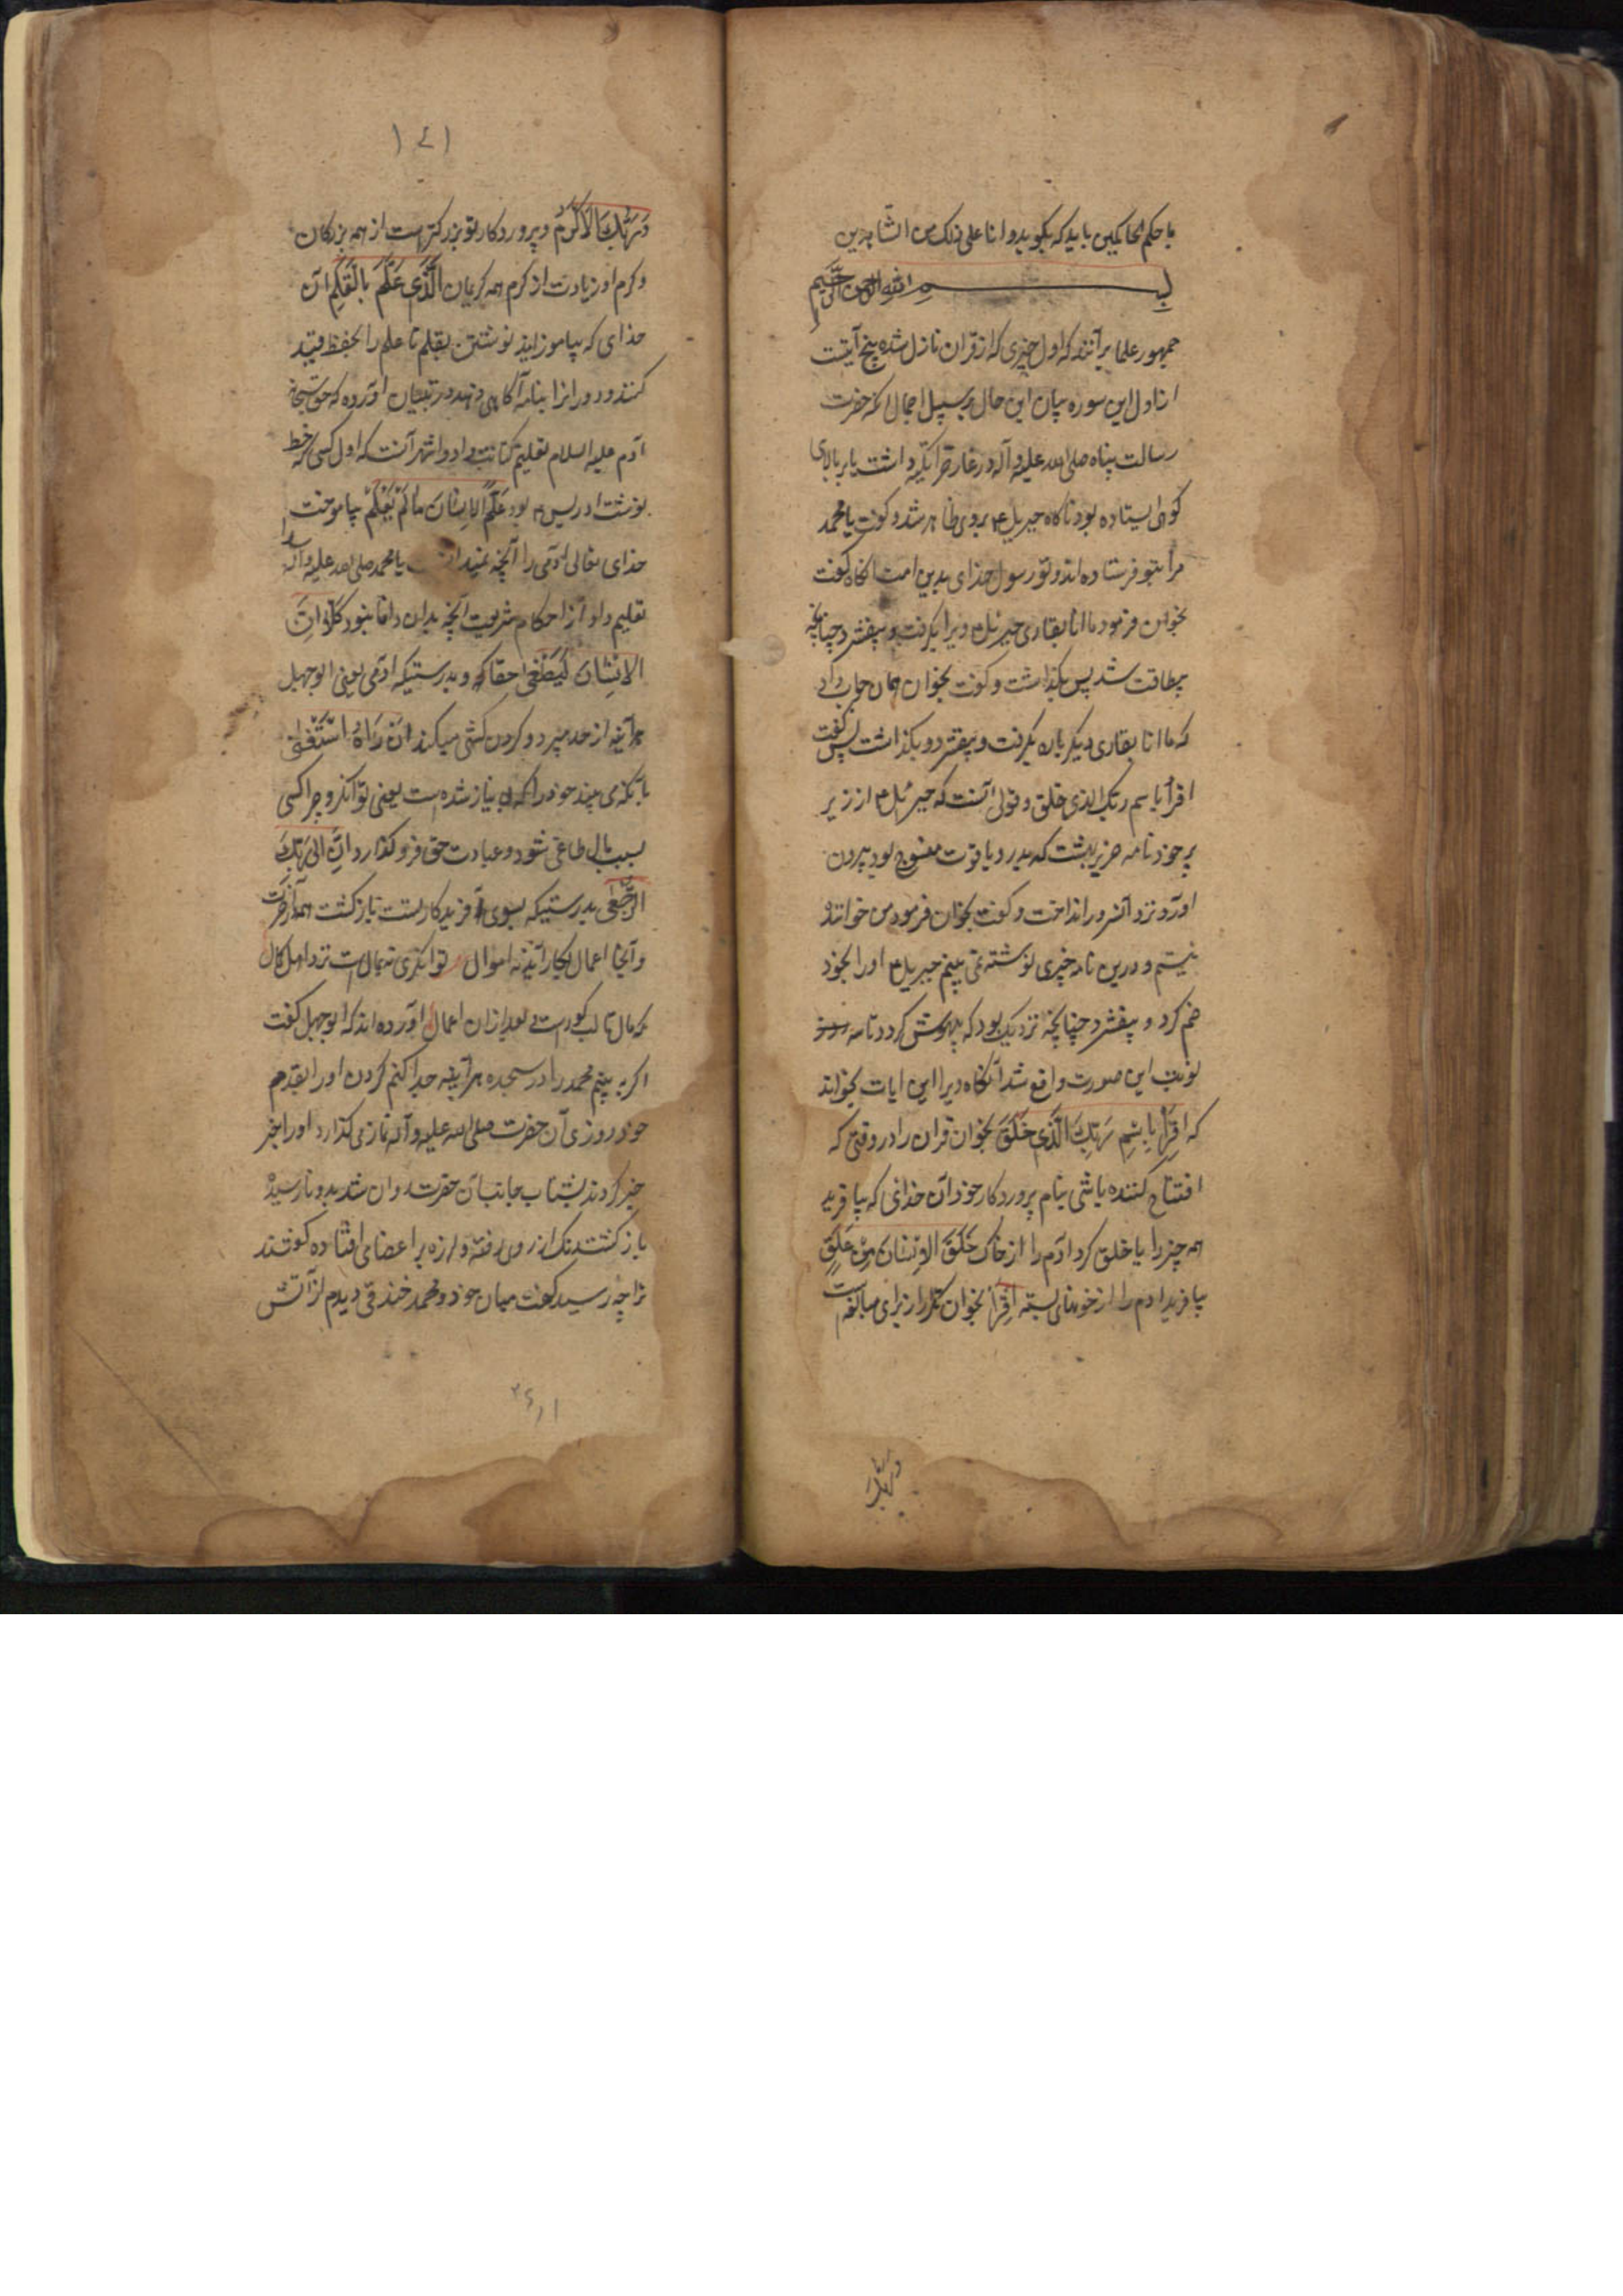 باحکم الحاکمین باید که بگوید و انا علی ذلک من الشاهدین
بسم الله الرحمن الرحیم
جمهور علما برآنند که اول چیزی که از قران نازل شده پنج آیتست
از اول این سوره بیان این حال بر سبیل اجمال آنکه حضرت
رسالت پناه صلی الله علیه و آله در غار حرا تکیه داشت یا بر بالای
کوهی ایستاده بود ناکاه جبریل ع بروی ظاهر شد و کفت یا محمد
مرا بتو فرستاده اند و تو رسول خدای بدین امت انکاه کفت
بخوان فرمود ما انا بقاری جبرئیل ع ویرا بکرفت و بیفشرد چنانچه
بیطاقت شد پس بکذاشت و کفت بخوان همان جواب داد
که ما انا بقاری دیکر باره بکرفت و بیفشرد و بکذاشت پس کفت
اقرأ باسم ربک الذی خلق و قولی آنست که جبرئیل ع از زیر
پر خود نامه حریر بهشت که بدر و یاقوت منسوج بود بیرون
اورد و نزد آنسرور انداخت و کفت بخوان فرمود من خواننده
نیستم و درین نامه چیزی نوشته نمی بینم جبریل ع او را بخود
ضم کرد و بیفشرد چنانچه نزدیک بود که بیهوش کردد تا سه
نوبت این صورت واقع شد آنکاه ویرا این ایات بخواند
که اِقْرَأْ بِاسْمِ رَبِّكَ الَّذِي خَلَقَ بخوان قران را در وقتی که
افتتاح کننده باشی بنام پروردکار خود آن خدائی که بیافرید
همه چیز را یا خلق کرد آدم را از خاک خَلَقَ الْاِنْسَانَ مِنْ عَلَقٍ
بیافرید ادم را از خونهای بسته اِقْرَأْ بخوان تکرار برای مبالغه است
وربک
۱۷۱
وَرَبُّكَ الْاَكْرَمُ و پروردکار تو بزرکتر است از همه بزرکان
و کرم او زیادت از کرم همه کریمان اَلَّذِي عَلَّمَ بِالْقَلَمِ آن
خدای که بیاموزانید نوشتن بقلم تا علم را بحفظ قید
کنند و دورانرا بنامه آکاهی دهند در تبیان اورده که حق سبحانه
آدم علیه السلام تعلیم کتابت داد و اشهر آنست که اول کسی که خط
نوشت ادریس ع بود عَلَّمَ الْاِنْسَانَ مَا لَمْ يَعْلَمْ بیاموخت
خدای تعالی ادمی را آنچه نمیدانست یا محمد صلی الله علیه و آله را
تعلیم داد از احکام شریعت آنچه بدان دانا نبود كَلَّا اِنَّ
الْاِنْسَانَ لَيَطْغٰى حقا که و بدرستیکه ادمی یعنی ابوجهل
هر آینه از حد میبرد و کردن کشی میکند اَنْ رَآهُ اسْتَغْنٰى
بانکه می بیند خود را که بی نیاز شده است یعنی توانکر و چرا کسی
بسبب مال طاغی شود و عبادت حق فرو کذارد اِنَّ اِلٰى رَبِّكَ
الرُّجْعٰى بدرستیکه بسوی آفریدکار تست بازکشت همه در آخرت
و آنجا اعمال بکار آید نه اموال توانکری نه بمال است نزد اهل کمال
که مال تا لب کورست بعد ازان اعمال اورده اند که ابوجهل کفت
اکر به بینم محمد را در سجده هر آینه جدا کنم کردن او را بقدم
خود روزی آن حضرت صلی الله علیه و آله نماز می کذارد او را خبر
خبر کردند بشتاب جانب آن حضرت دوان شد بدو نارسیده
باز کشت رنک از روی رفته و لرزه بر اعضای افتاده کفتند
ترا چه رسید کفت میان خود و محمد خندقی دیدم از آتش